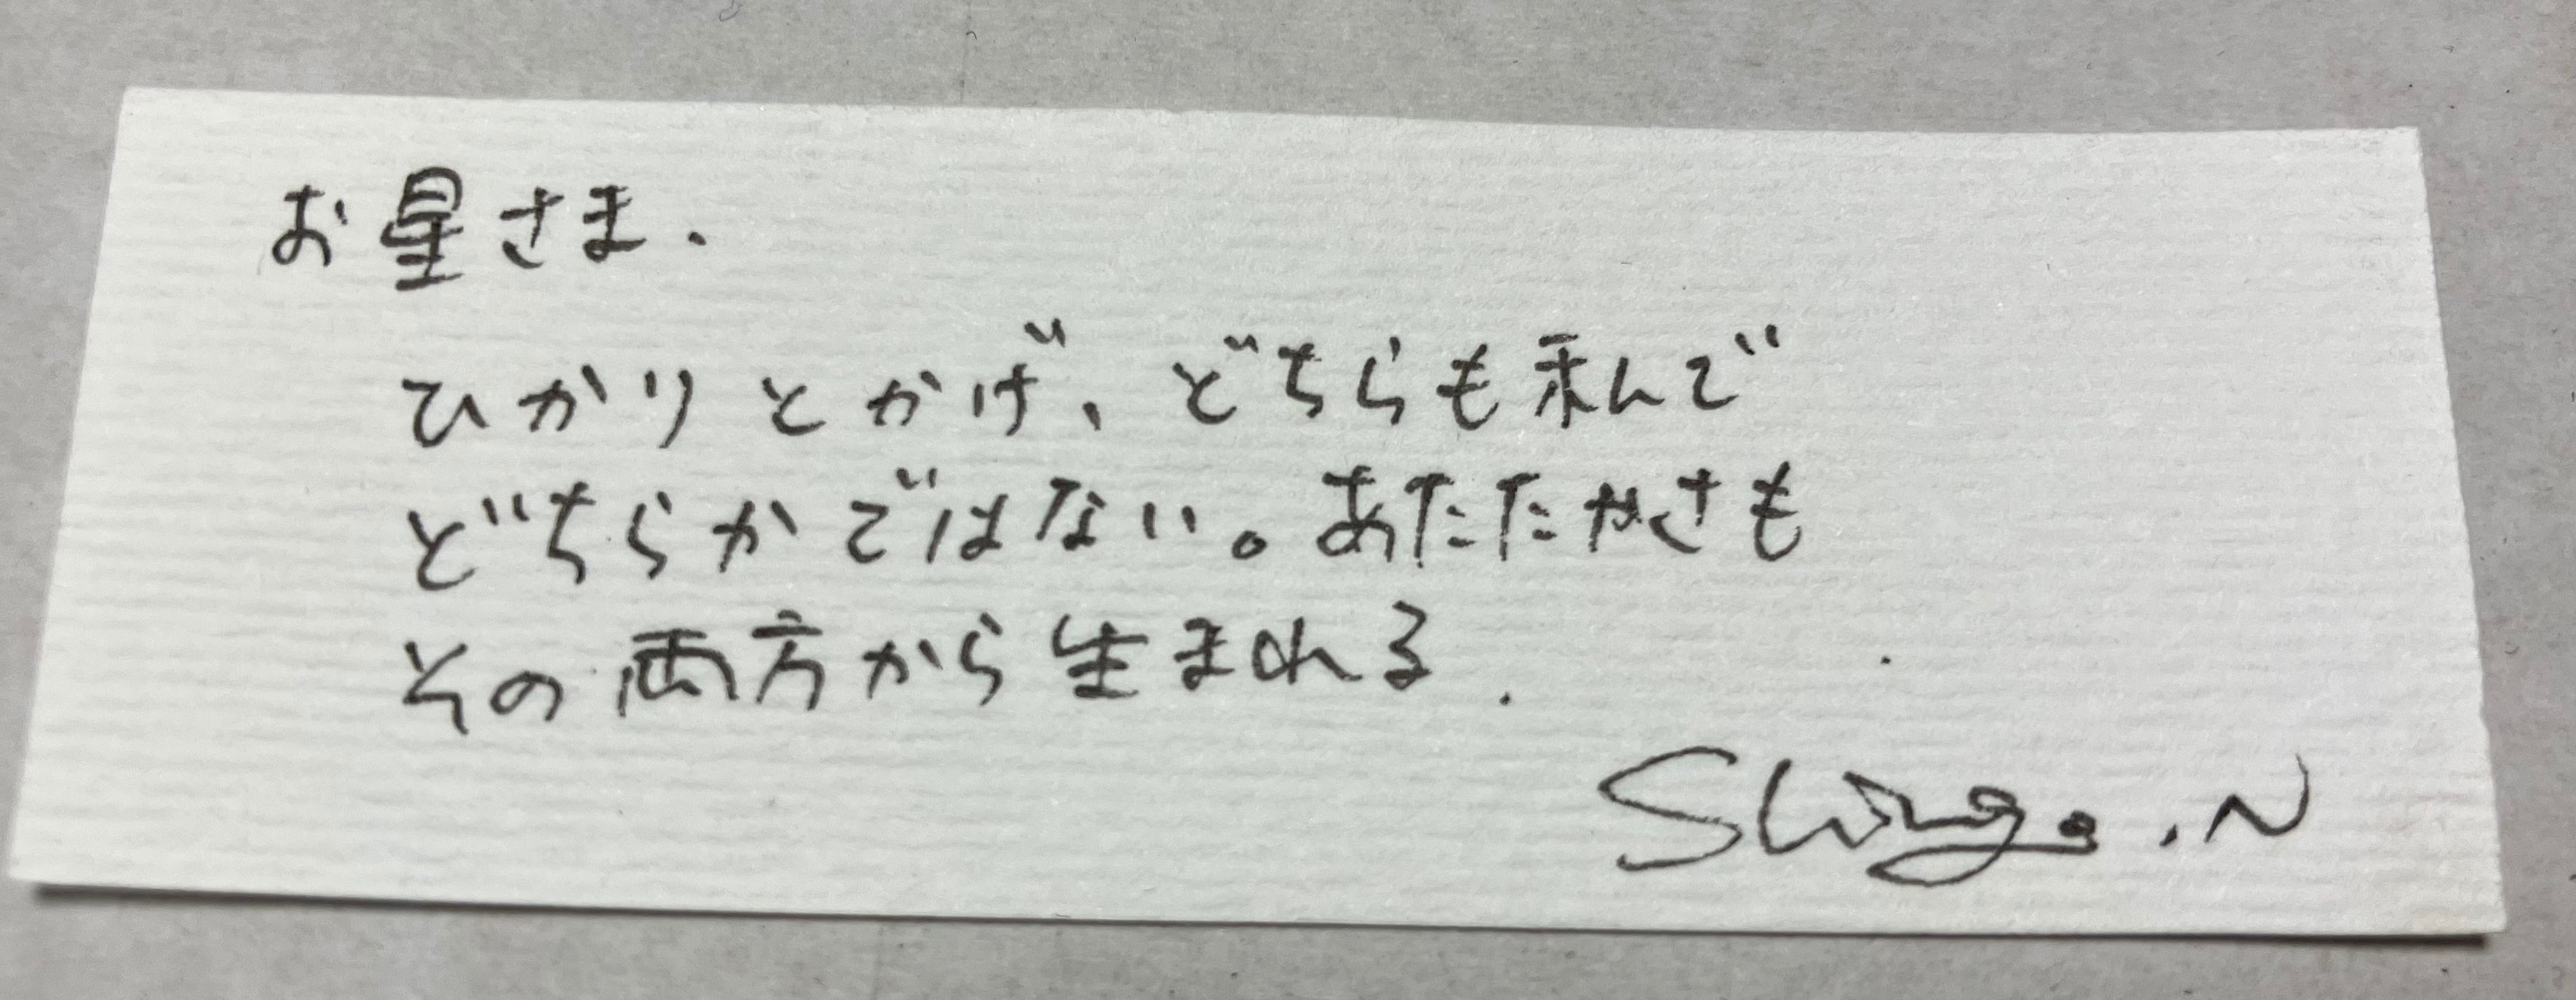 お星さま.
ひかりとかげ、どちらも私んで
どちらかではない。あたたかさも
その両方から生まれる.
Shingo.N